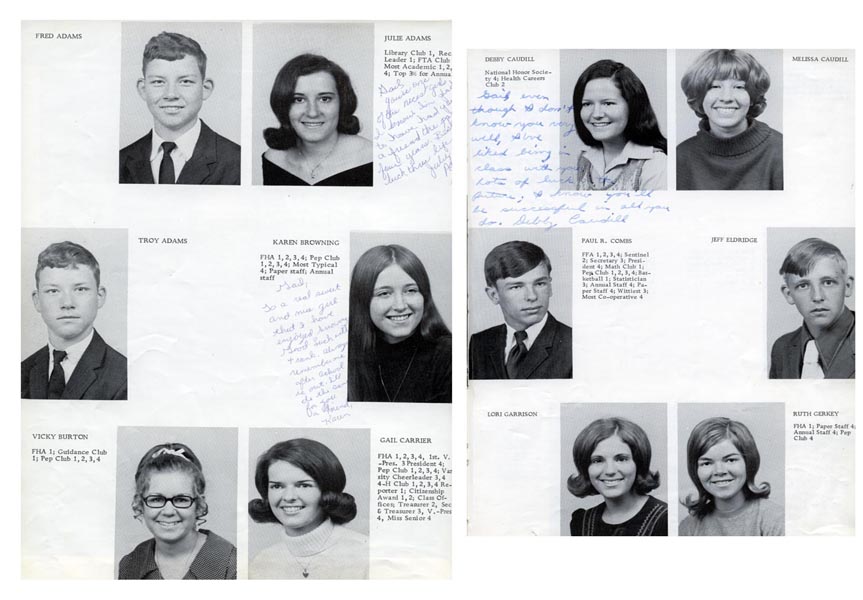 FRED ADAMS
JULIE ADAMS
Library Club 1, Rec
Leader 1; FTA Club
Most Academic 1, 2,
4; Top 3% for Annual
Gail,
TROY ADAMS
KAREN BROWNING
FHA 1, 2, 3, 4; Pep Club
1, 2, 3, 4; Most Typical
4; Paper staff; Annual
staff
Gail,
To a real sweet
and nice girl
that I have
enjoyed knowing
Good luck
always
remember me
after school
is out. I'll
do the same
for you
a friend,
Karen
VICKY BURTON
FHA 1; Guidance Club
1; Pep Club 1, 2, 3, 4
GAIL CARRIER
FHA 1, 2, 3, 4, 1st. V.
-Pres. 3 President 4;
Pep Club 1, 2, 3, 4; Var
sity Cheerleader 3, 4
4-H Club 1, 2, 3, 4 Re-
porter 1; Citizenship
Award 1, 2; Class Of-
fices; Treasurer 2, Sec
& Treasurer 3, V.-Pres
4, Miss Senior 4
DEBBY CAUDILL
National Honor Socie-
ty 4; Health Careers
Club 2
Gail even
though I don't
know you very
well, I've
liked being in
class with you
lots of luck in the
future. I know you'll
be successful in all you
do. Debby Caudill
MELISSA CAUDILL
PAUL R. COMBS
FFA 1, 2, 3, 4; Sentinel
2; Secretary 3; Presi-
dent 4; Math Club 1;
Pep Club 1, 2, 3, 4; Bas-
ketball 1; Statistician
3; Annual Staff 4; Pa-
per Staff 4; Wittiest 3;
Most Co-operative 4
JEFF ELDRIDGE
LORI GARRISON
RUTH GERKEY
FHA 1; Paper Staff 4;
Annual Staff 4; Pep
Club 4